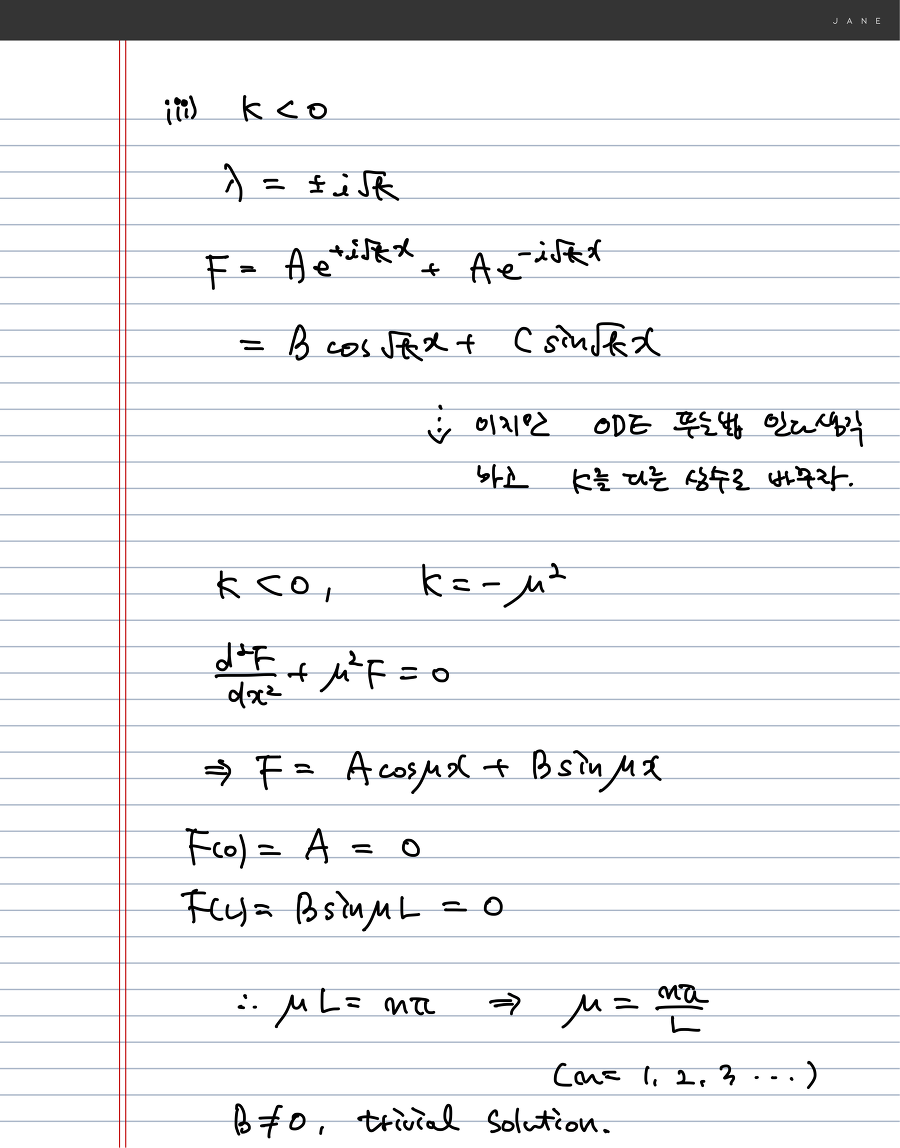 JANE
iii) k < 0
λ = ± i √k
F = A e^{+i√k x} + A e^{-i√k x}
= B cos √k x + C sin √k x
이지만 ODE 푸는법 인다생각
하고 k를 다른 상수로 바꾸라.
k < 0, k = - μ²
d²F/dx² + μ²F = 0
⇒ F = A cos μx + B sin μx
F(0) = A = 0
F(L) = B sin μL = 0
∴ μL = nπ ⇒ μ = nπ/L
(n = 1, 2, 3 ···)
B ≠ 0, trivial solution.